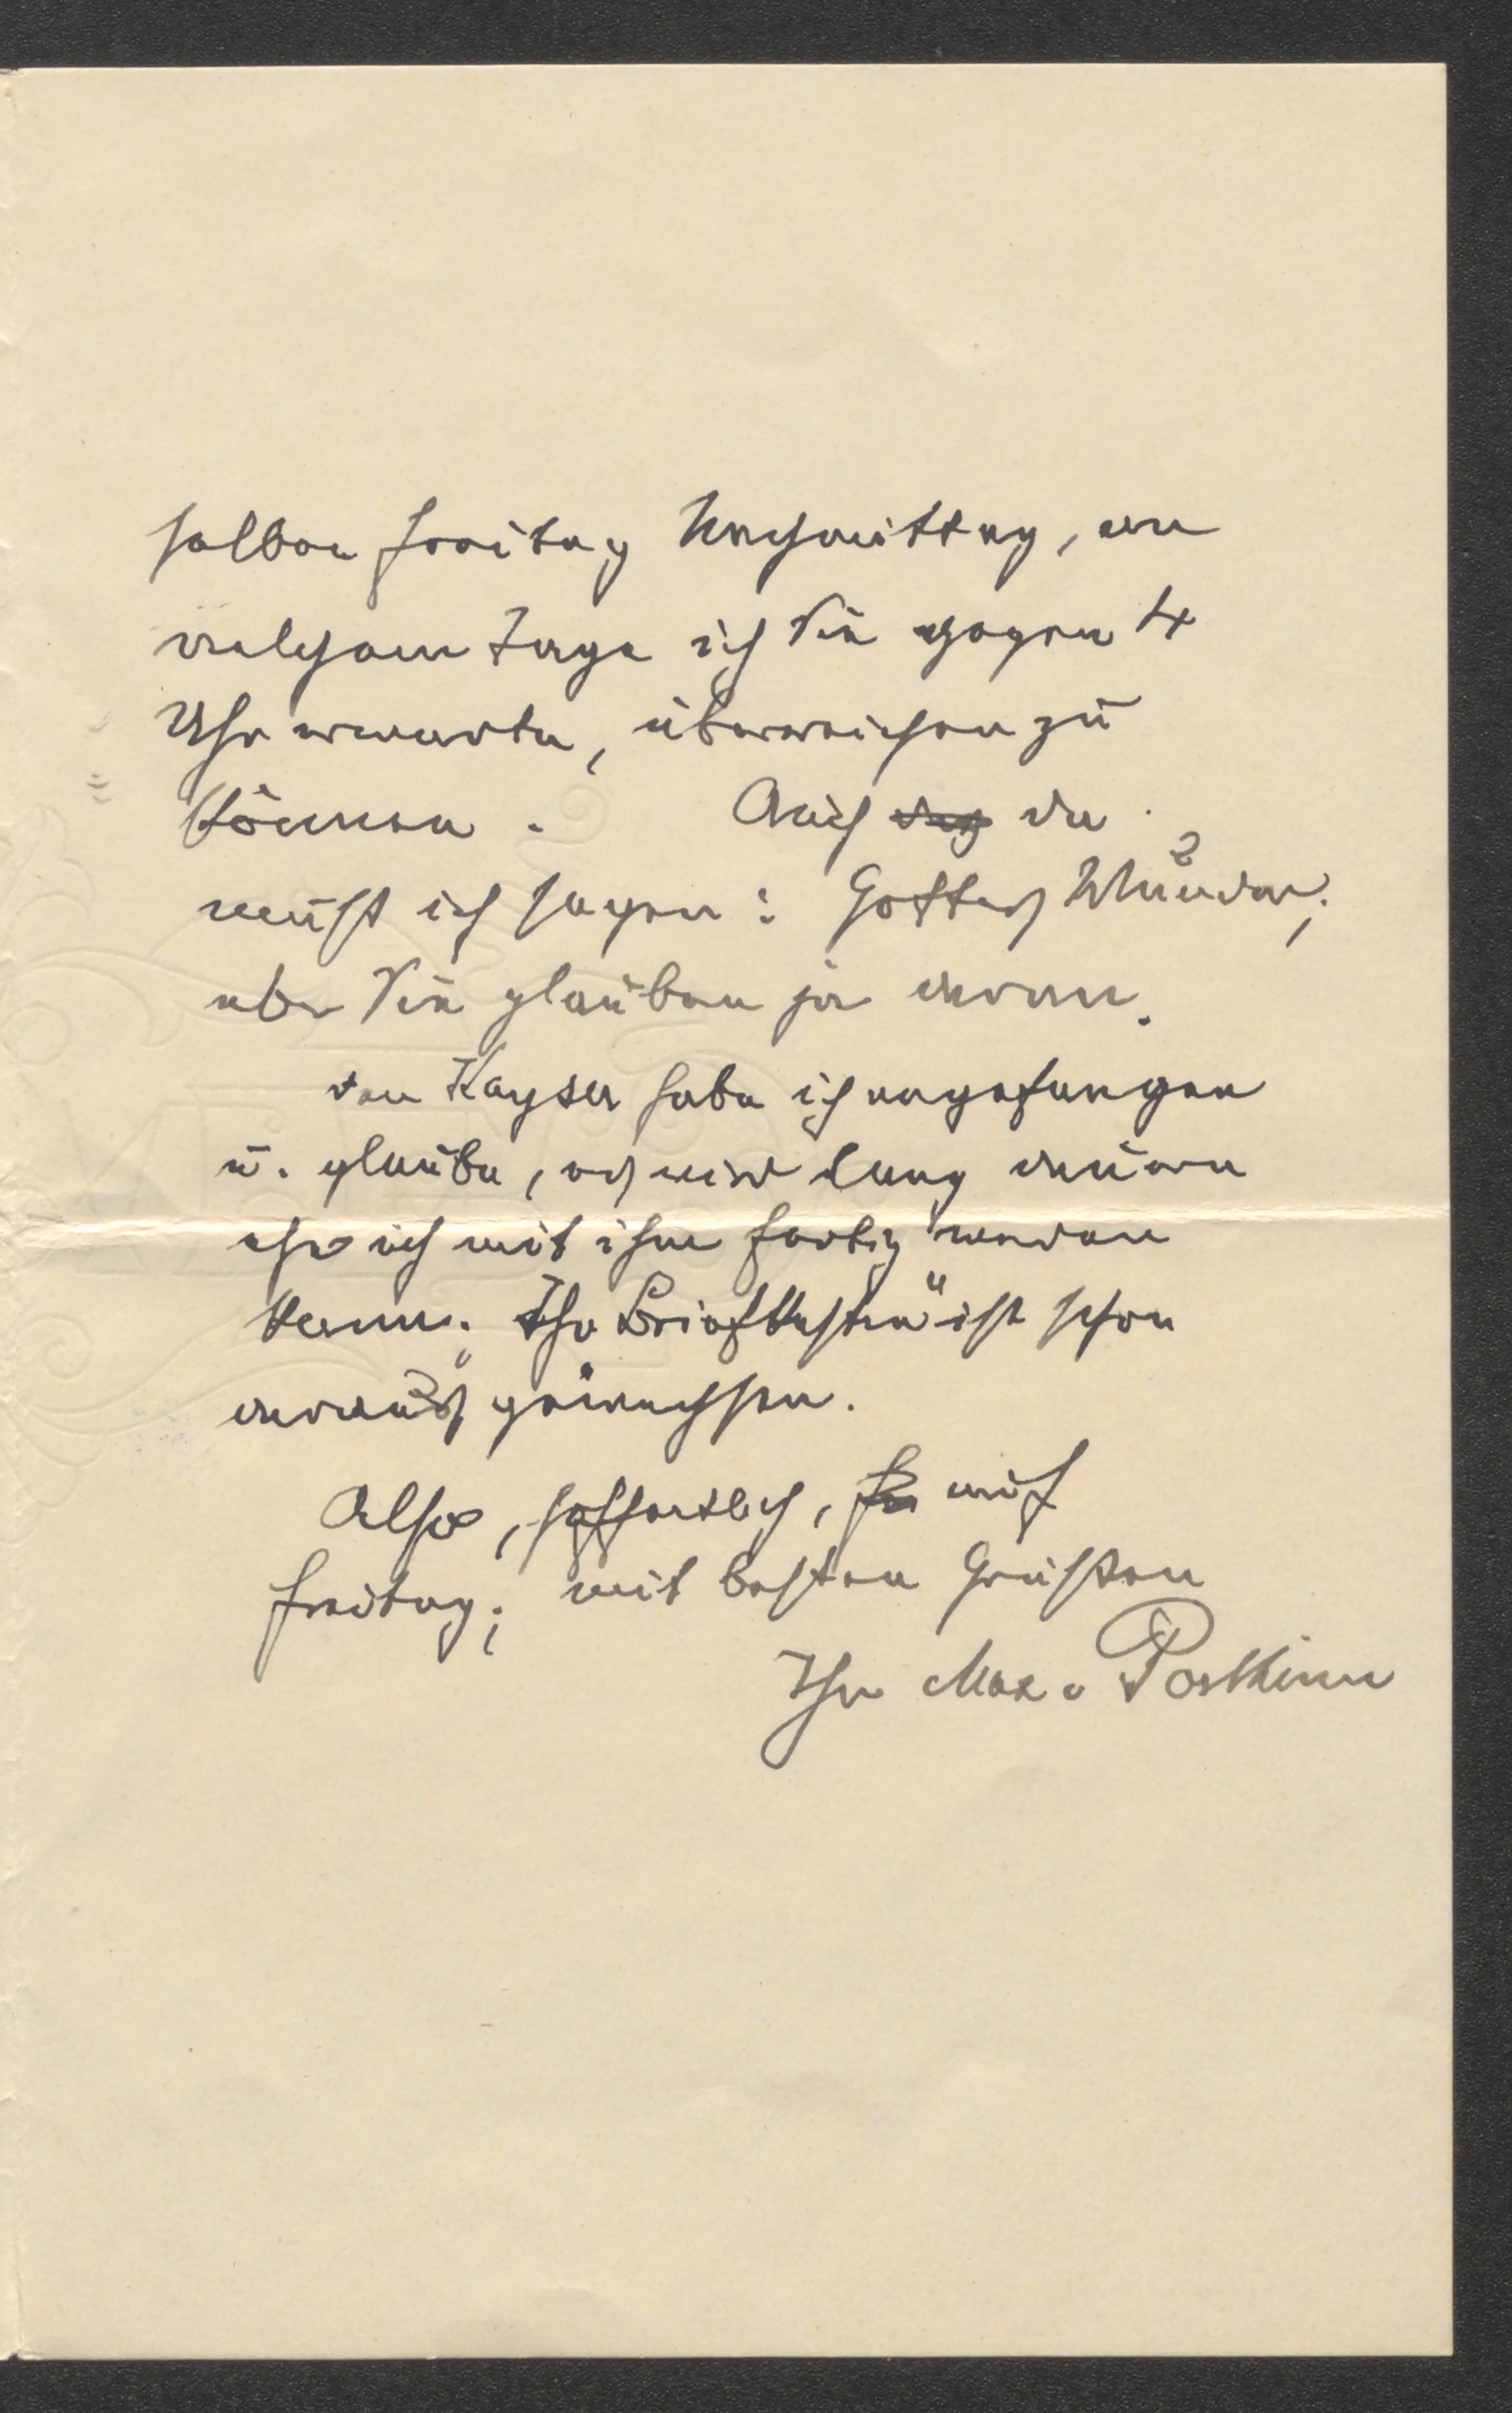 selben Freitag Nachmittag, an
welchem Tage ich Sie gegen 4
Uhr erwarte, überreichen zu
können. Auch das da
muß ich sagen: Gottes Wunder;
aber Sie glauben ja daran.
den Kayser habe ich angefangen
u. glaube, es wird lang dauern
ehe ich mit ihm fertig werden
kann. Ihr „Briefkasten“ ist schon
daraus gewachsen.
Also, hoffentlich, auf
Freitag; mit besten Grüßen
Ihr Max v Portheim